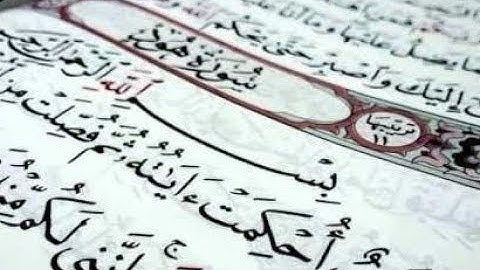 يَضِلُّ عَلَيْهَا وَمَآ أَنَا۠
إِلَيْكَ وَٱصْبِرْ حَتَّىٰ يَحْكُمَ
سُورَةُ هُودٍ
ترتيبها ١١
بِسْمِ ٱللَّهِ ٱلرَّحْمَٰنِ ٱلرَّحِيمِ
أُحْكِمَتْ ءَايَٰتُهُۥ ثُمَّ فُصِّلَتْ مِن
إِنَّنِى لَكُم مِّنْهُ